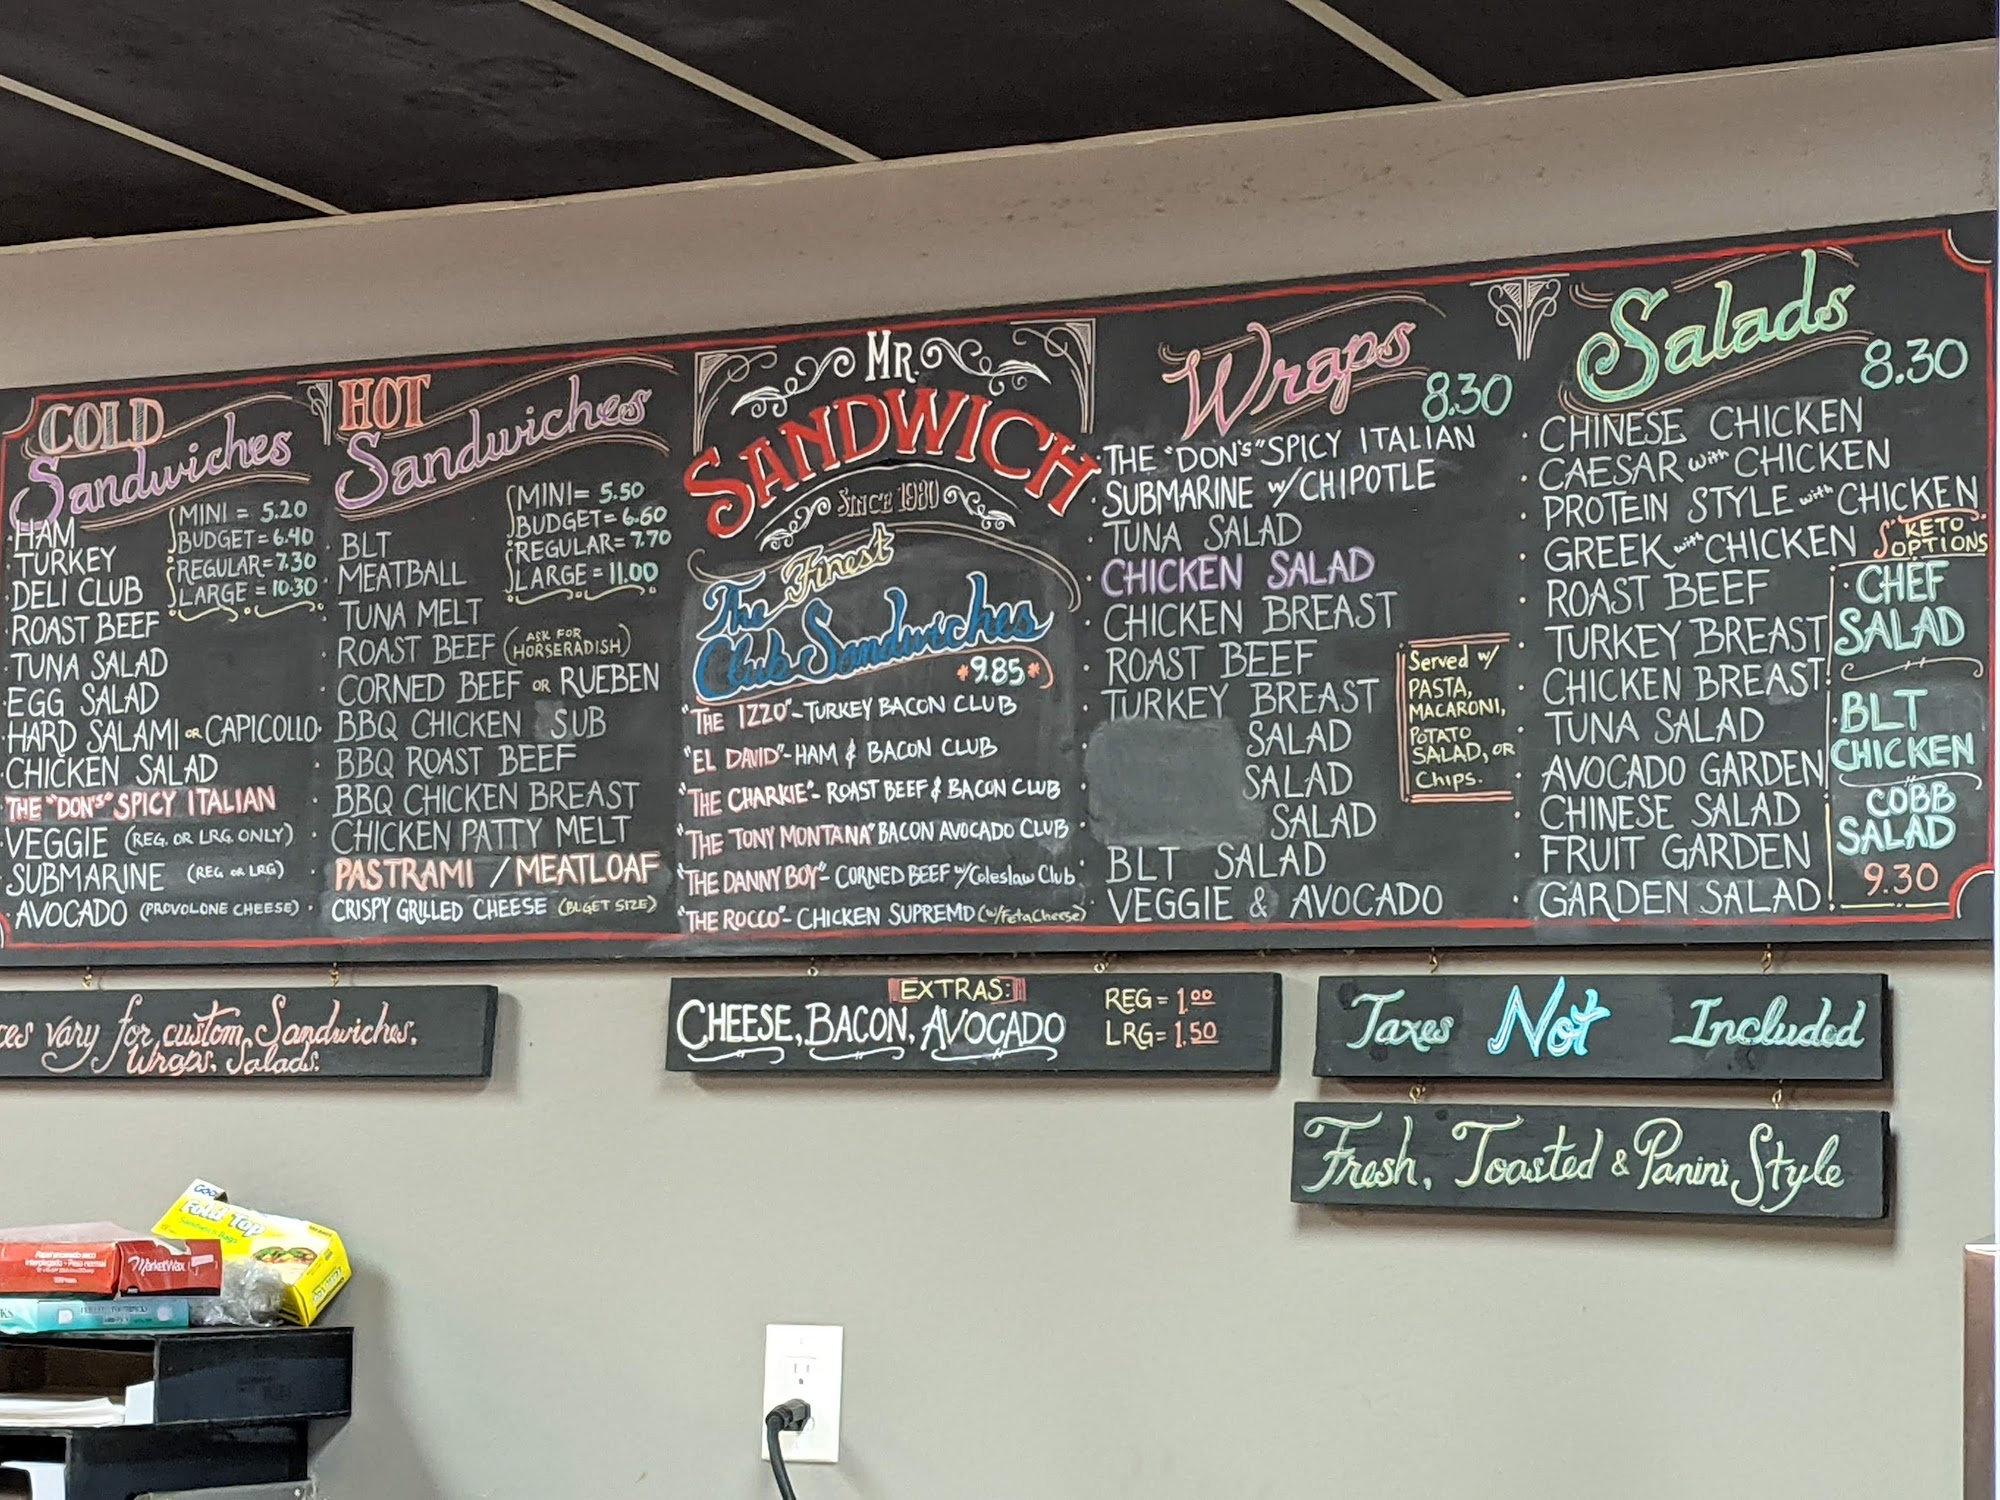 COLD
Sandwiches
MINI = 5.20
BUDGET = 6.40
REGULAR = 7.30
LARGE = 10.30
· HAM
· TURKEY
· DELI CLUB
· ROAST BEEF
· TUNA SALAD
· EGG SALAD
· HARD SALAMI OR CAPICOLLO
· CHICKEN SALAD
THE "DON'S" SPICY ITALIAN
· VEGGIE (REG. OR LRG. ONLY)
· SUBMARINE (REG OR LRG)
· AVOCADO (PROVOLONE CHEESE)
HOT
Sandwiches
MINI = 5.50
BUDGET = 6.60
REGULAR = 7.70
LARGE = 11.00
· BLT
· MEATBALL
· TUNA MELT
· ROAST BEEF (ASK FOR HORSERADISH)
· CORNED BEEF OR RUEBEN
· BBQ CHICKEN SUB
· BBQ ROAST BEEF
· BBQ CHICKEN BREAST
· CHICKEN PATTY MELT
· PASTRAMI / MEATLOAF
· CRISPY GRILLED CHEESE (BUGET SIZE)
MR.
SANDWICH
SINCE 1980
The Finest
Club Sandwiches
*9.85*
"THE IZZO" - TURKEY BACON CLUB
"EL DAVID" - HAM & BACON CLUB
"THE CHARKIE" - ROAST BEEF & BACON CLUB
"THE TONY MONTANA" BACON AVOCADO CLUB
"THE DANNY BOY" - CORNED BEEF w/Coleslaw Club
"THE ROCCO" - CHICKEN SUPREMO (w/Feta Cheese)
Wraps
8.30
· THE "DON'S" SPICY ITALIAN
· SUBMARINE w/ CHIPOTLE
· TUNA SALAD
· CHICKEN SALAD
· CHICKEN BREAST
· ROAST BEEF
· TURKEY BREAST
· SALAD
· SALAD
· SALAD
· BLT SALAD
· VEGGIE & AVOCADO
Served w/
PASTA,
MACARONI,
POTATO
SALAD, OR
Chips.
Salads
8.30
· CHINESE CHICKEN
· CAESAR with CHICKEN
· PROTEIN STYLE with CHICKEN
· GREEK with CHICKEN
· ROAST BEEF
· TURKEY BREAST
· CHICKEN BREAST
· TUNA SALAD
· AVOCADO GARDEN
· CHINESE SALAD
· FRUIT GARDEN
· GARDEN SALAD
KETO
OPTIONS
· CHEF
SALAD
· BLT
CHICKEN
· COBB
SALAD
9.30
ces vary for custom Sandwiches,
Wraps, Salads.
EXTRAS:
CHEESE, BACON, AVOCADO
REG = 1.00
LRG = 1.50
Taxes Not Included
Fresh, Toasted & Panini Style
Fold Top
Sandwich Bags
MarketWax